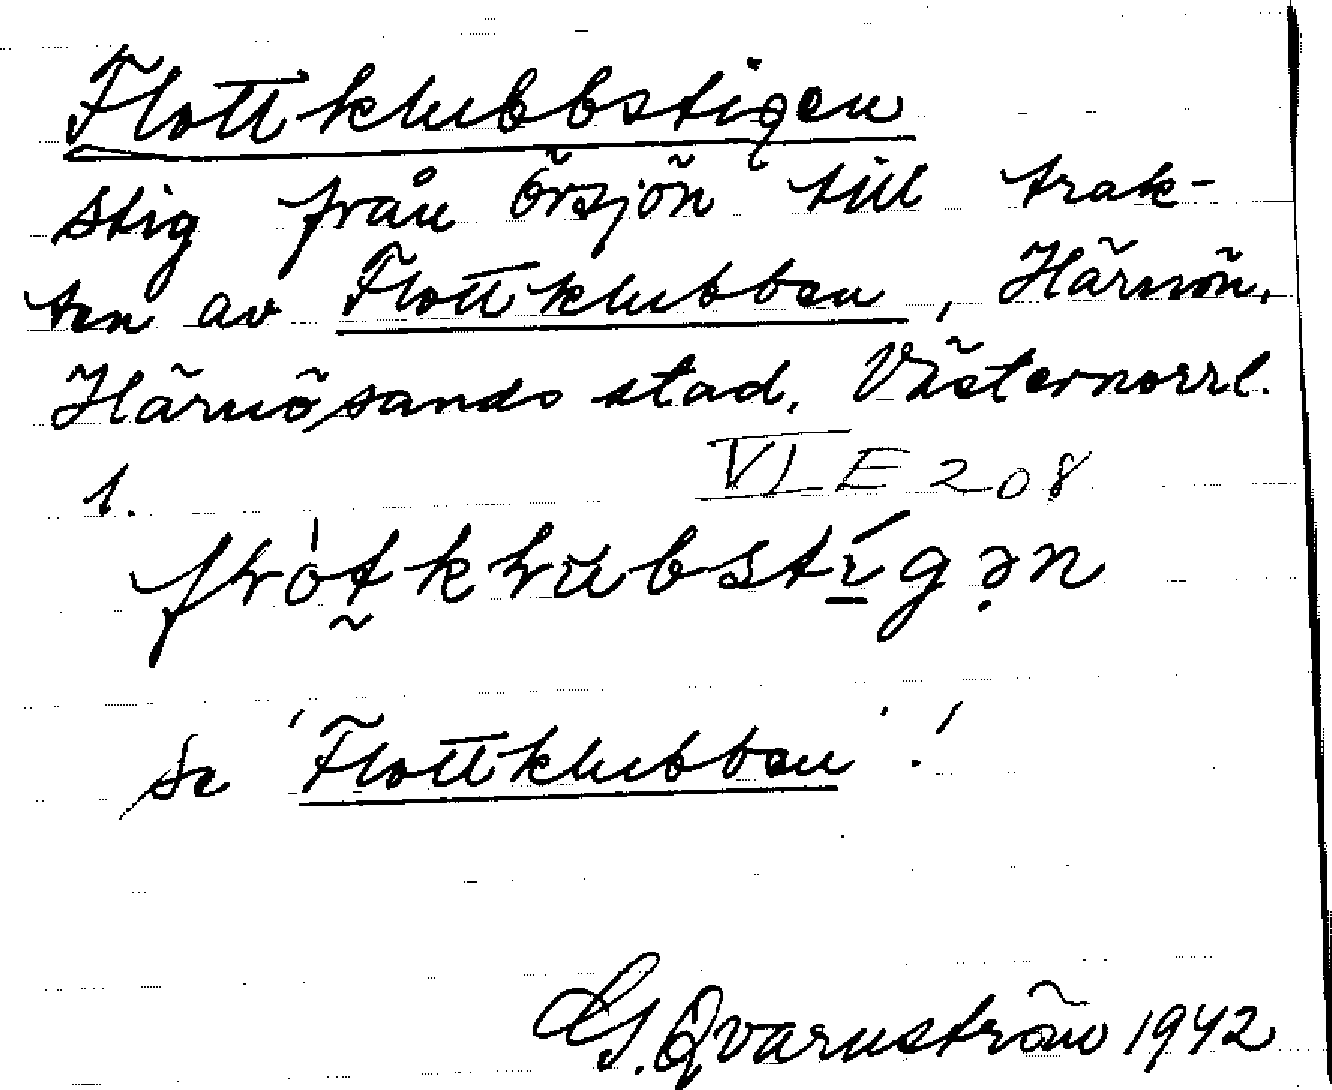 Flottklubbstigen
stig från Örsjön till trak-
ten av Flottklubben, Härnön,
Härnösands stad, Västernorrl.
1. VI E 208
se 'Flottklubben'!
G. Qvarnström 1942